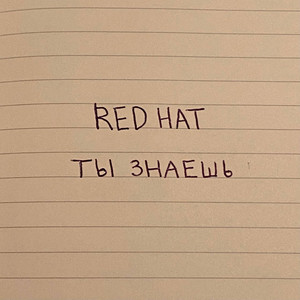 RED HAT
ТЫ ЗНАЕШЬ